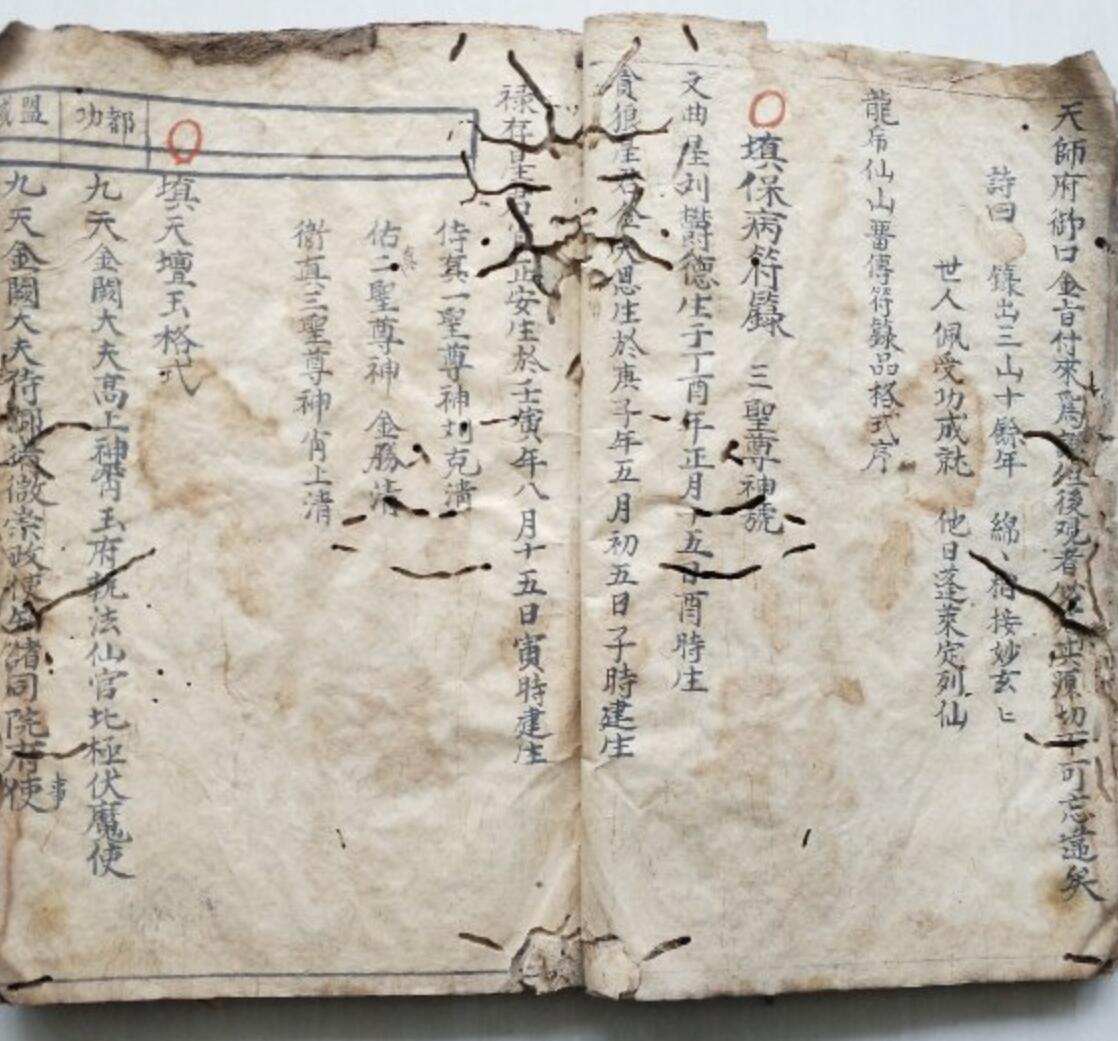 天師府御口金音付來爲 後觀者 須切不可忘遠矣
詩曰 籙出三山十餘年 綿丶相接妙玄匕
世人佩受功成就 他日蓬萊定列仙
龍虎仙山畨傳符籙品格式序
填保病符籙 三聖尊神號
文曲星刘欝德生于丁酉年正月十五日酉時生
貪狼星君金大思生於庚子年五月初五日子時建生
禄存星君 正安生於壬寅年八月十五日寅時建生
侍真一聖尊神刘克清
佑真二聖尊神 金勝清
衞真三聖尊神宵上清
填天壇玉格式
都功
九天金闕大夫髙上神霄玉府執法仙官北極伏魔使
盟威
九天金闕大夫待 崇政使 諸同院府使事